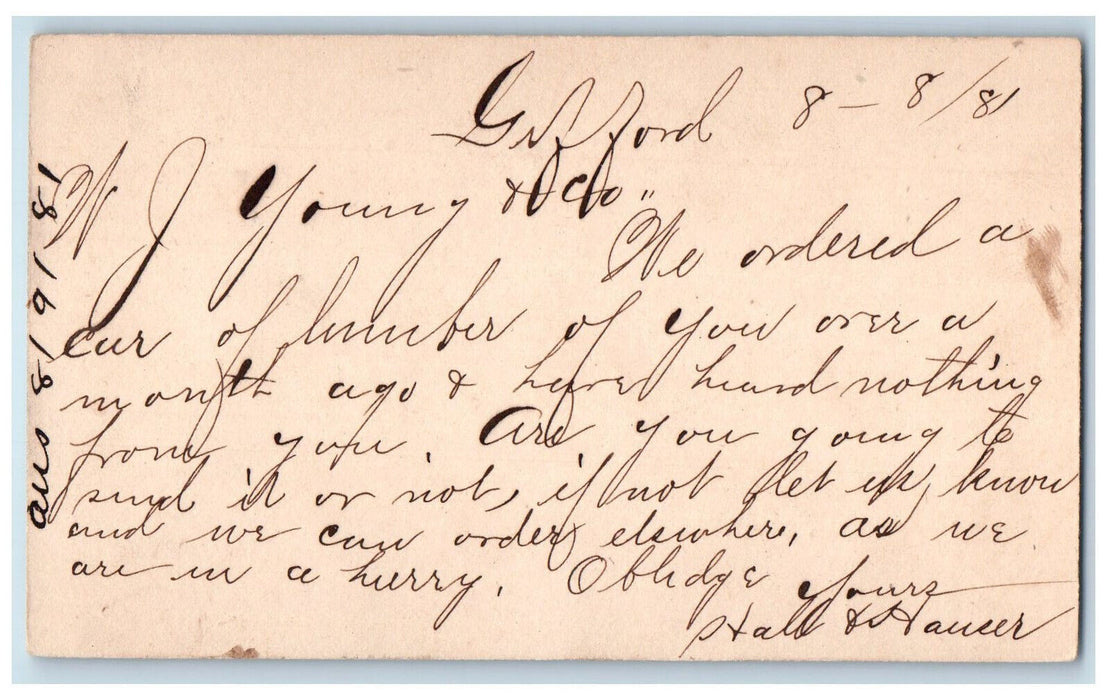 Gifford 8 - 8/81
W J Young & Co"
We ordered a
car of lumber of you over a
month ago & have heard nothing
from you. Are you going to
send it or not, if not let us know
and we can order elsewhere, as we
are in a hurry. Oblidge yours
Hall & Hauser
ans 8/9/81